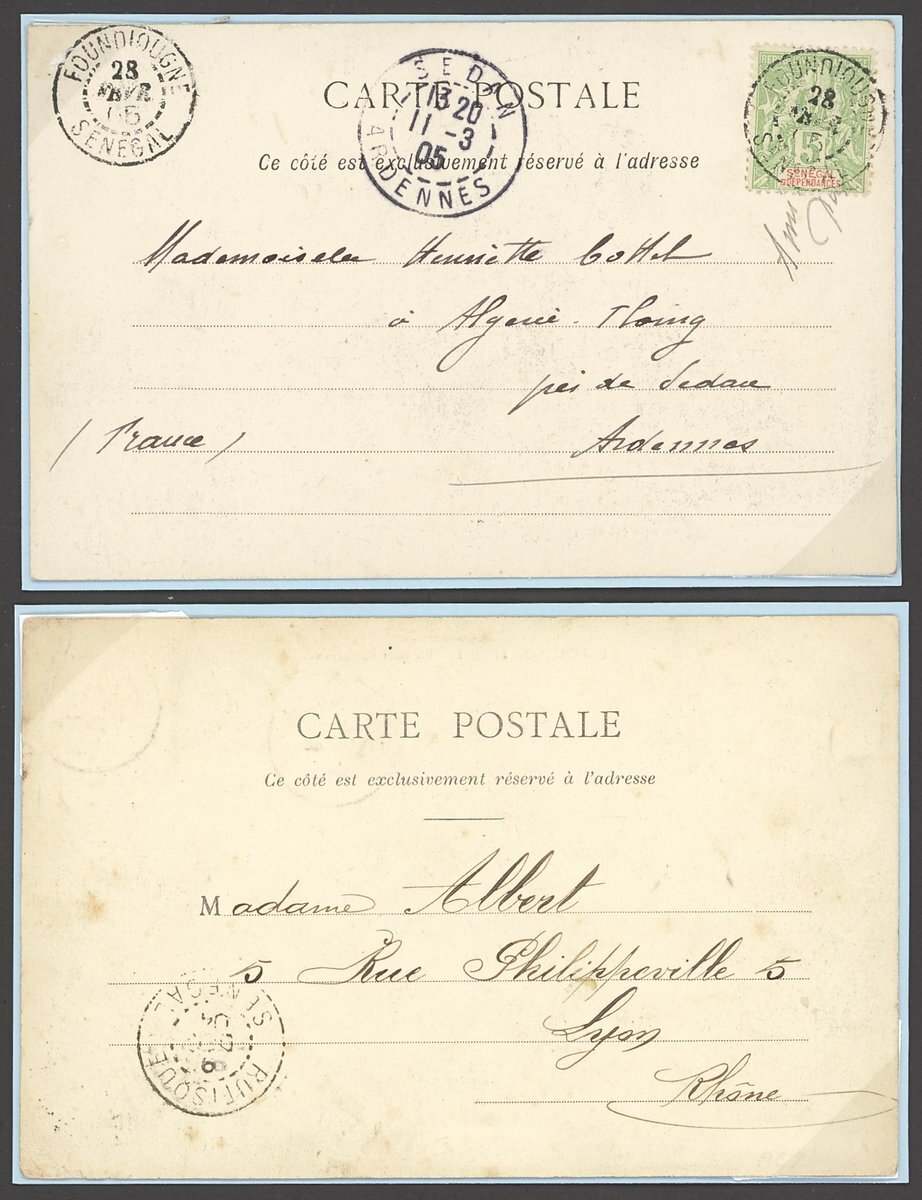 FOUNDIOUGNE
28
SENEGAL
SEDAN
13 20
11 -3
05
ARDENNES
CARTE POSTALE
Ce côté est exclusivement réservé à l'adresse
FOUNDIOUGNE
28
5
SÉNÉGAL
ET DÉPENDANCES
Mademoiselle Henriette Cottel
à Algerie-Floing
près de Sedan
(France)
Ardennes
CARTE POSTALE
Ce côté est exclusivement réservé à l'adresse
Madame Albert
5 Rue Philippeville 5
Lyon
Rhône
RUFISQUE
SENEGAL